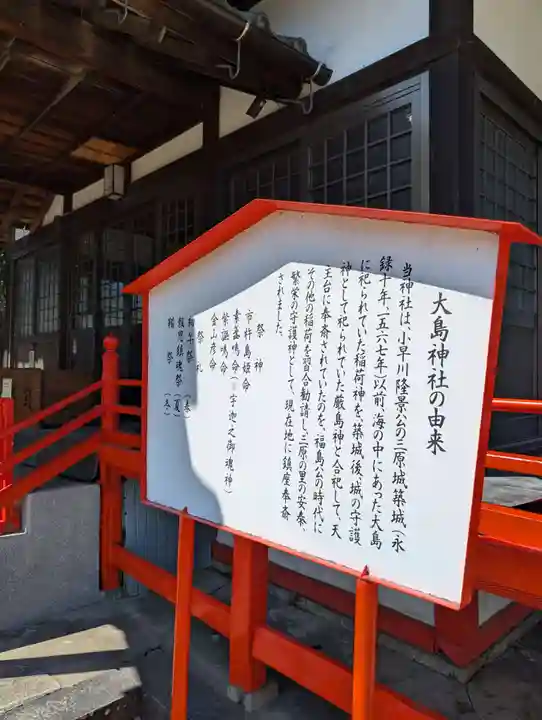 大島神社の由来
当神社は、小早川隆景公の三原城築城、(永
録十年、一五六七年)以前、海の中にあった大島
に祀られていた稲荷神を、築城後、城の守護
神として祀られていた厳島神と合祀して、天
王台に奉斎されていたのを、福島公の時代に
その他の稲荷を習合勧請し、三原の里の安泰、
繁栄の守護神として、現在地に鎮座奉斎
されました。
祭神
市杵島姫命
素盞鳴命(宇迦之御魂神)
紫誣鳴命
金山彦命
祭礼
初午祭(春)
鎮魂祭(夏)
稲祭(冬)